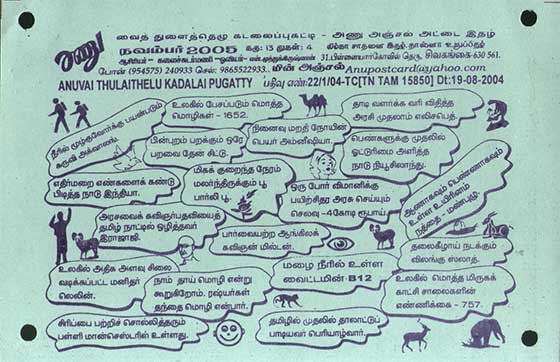 அணு
வைத் துளைத்தெழு கடலைப்புகட்டி - அணு அஞ்சல் அட்டை இதழ்
நவம்பர் 2005 கரு: 13 துகள்: 4 லிம்கா சாதனை இதழ்
ஆசிரியர் - கலைச்சுடர்மணி - ஓவியர் - என்.முத்துக்கிருஷ்ணன் 31, பிள்ளையார்கோவில் தெரு, சிவகங்கை 630 561.
போன் (954575) 240933 செல்: 9865522933. மின் அஞ்சல் Anupostcard@yahoo.com
ANUVAI THULAITHELU KADALAI PUGATTY பதிவு எண்: 22/1/04-TC[TN TAM 15850] Dt:19-08-2004
நீரில் மூழ்குவோர்க்கு பயன்படும்
கருவி அக்வாலங்
உலகில் பேசப்படும் மொத்த
மொழிகள் - 1652.
தாடி வளர்க்க வரி விதித்த
அரசி முதலாம் எலிசபெத்.
பின்புறம் பறக்கும் ஒரே
பறவை தேன் சிட்டு.
நினைவு மறதி நோயின்
பெயர் அம்னீஷியா.
பெண்களுக்கு முதலில்
ஓட்டுரிமை அளித்த
நாடு நியூசிலாந்து.
எதிர்மறை எண்களைக் கண்டு
பிடித்த நாடு இந்தியா.
மிகக் குறைந்த நேரம்
மலர்ந்திருக்கும் பூ
பார்லி பூ.
ஒரு போர் விமானிக்கு
பயிற்சிதர அரசு செய்யும்
செலவு - 4கோடி ரூபாய்.
ஆணாகவும் பெண்ணாகவும்
உள்ள உயிரினம்
நத்தை - மண்புழு.
அரசவைக் கவிஞர்பதவியைத்
தமிழ் நாட்டில் ஒழித்தவர்
இராஜாஜி.
பார்வையற்ற ஆங்கிலக்
கவிஞன் மில்டன்.
தலைகீழாய் நடக்கும்
விலங்கு ஸ்லாத்.
உலகில் அதிக அளவு சிலை
வடிக்கப்பட்ட மனிதர்
லெனின்.
நாம் தாய் மொழி என்று
கூறுகிறோம். ரஷ்யர்கள்
தந்தை மொழி என்பார்.
மழை நீரில் உள்ள
வைட்டமின் B12
உலகில் மொத்த மிருகக்
காட்சி சாலைகளின்
எண்ணிக்கை - 757.
சிரிப்பை பற்றிச் சொல்லித்தரும்
பள்ளி மான்செஸ்டரில் உள்ளது.
தமிழில் முதலில் தாலாட்டுப்
பாடியவர் பெரியாழ்வார்.